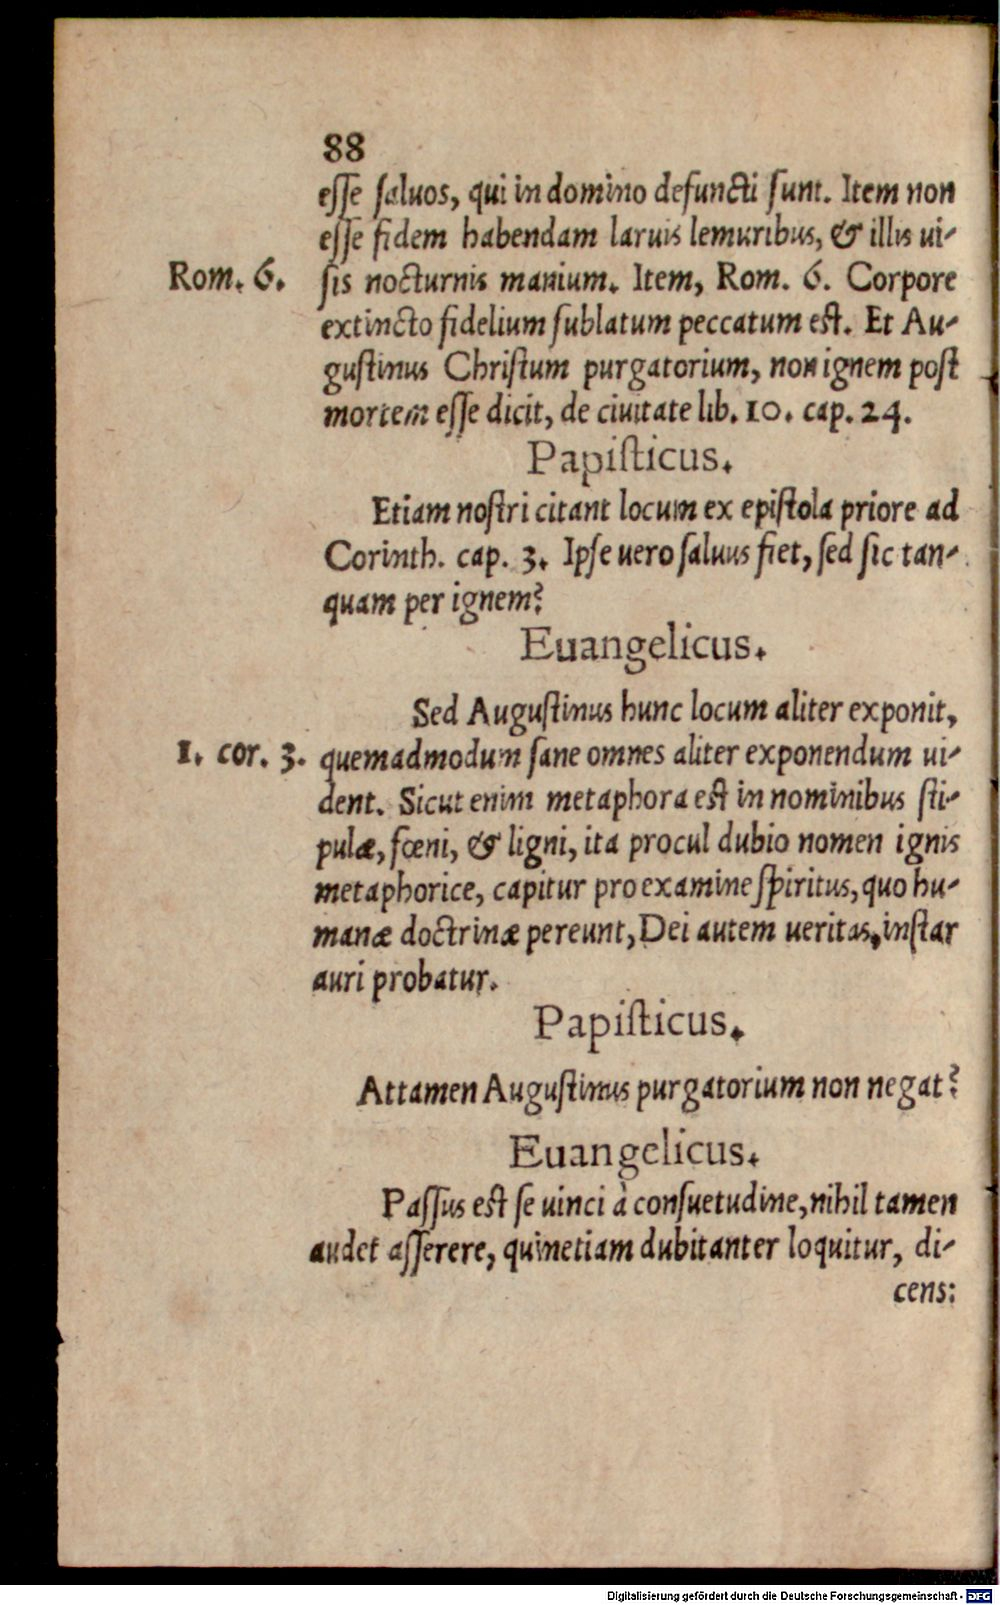 88
esse saluos, qui in domino defuncti sunt. Item non
esse fidem habendam laruis lemuribus, & illis ui-
Rom. 6. sis nocturnis manium. Item, Rom. 6. Corpore
extincto fidelium sublatum peccatum est. Et Au-
gustinus Christum purgatorium, non ignem post
mortem esse dicit, de ciuitate lib. 10. cap. 24.
Papisticus.
Etiam nostri citant locum ex epistola priore ad
Corinth. cap. 3. Ipse uero saluus fiet, sed sic tan-
quam per ignem?
Euangelicus.
Sed Augustinus hunc locum aliter exponit,
1. cor. 3. quemadmodum sane omnes aliter exponendum ui-
dent. Sicut enim metaphora est in nominibus sti-
pulæ, fœni, & ligni, ita procul dubio nomen ignis
metaphorice, capitur pro examine spiritus, quo hu-
manæ doctrinæ pereunt, Dei autem ueritas, instar
auri probatur.
Papisticus.
Attamen Augustinus purgatorium non negat?
Euangelicus.
Passus est se uinci à consuetudine, nihil tamen
audet asserere, quinetiam dubitanter loquitur, di-
cens:
Digitalisierung gefördert durch die Deutsche Forschungsgemeinschaft - DFG